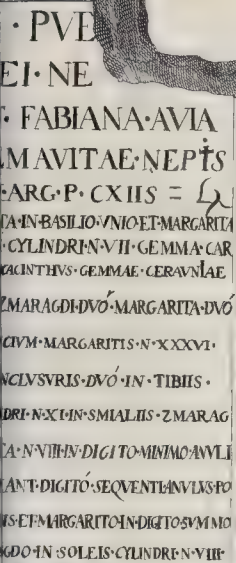 · PVE
EI · NE
· FABIANA · AVIA
M AVITAE · NEPTS
· ARG · P · CXIIS =
TA · IN · BASILIO · VNIO · ET · MARGARITA
· CYLINDRI · N · VII · GEMMA · CAR
ACINTHVS · GEMMAE · CERAVNIAE
ZMARAGDI · DVÓ · MARGARITA · DVÓ
CIVM · MARGARITIS · N · XXXVI ·
NCLVSVRIS · DVÓ · IN · TIBIIS ·
DRI · N · XI · IN · SMIALIIS · ZMARAG
A · N · VIII · IN · DIGITO · MINIMO · ANVLI
ANT · DIGITÓ · SEQVENTI · ANVLVS · PO
IS · ET · MARGARITO · IN · DIGITO · SVMMO
GDO · IN · SOLEIS · CYLINDRI · N · VIII ·